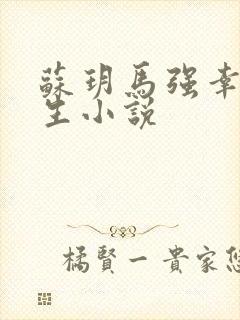 蘇玥馬强幸
生小説
橘賢一貴家悠